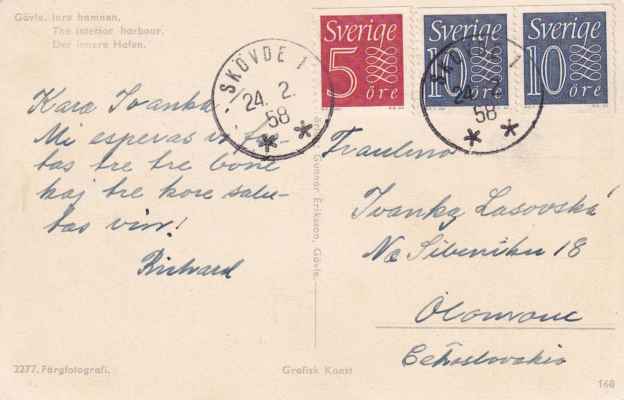 Gävle. Inre hamnen.
The interior harbour.
Der innere Hafen.
Sverige
5
öre
Sverige
10
öre
Sverige
10
öre
SKÖVDE 1
24. 2.
58
SKÖVDE 1
24. 2.
58
Kara Ivanka
Mi esperas vi far-
tas tre tre bone
kaj tre kore salu-
tas vin!
Richard
Gunnar Eriksson, Gävle.
Fraulino
Ivanka Lasovská
Na Šibeniku 18
Olomouc
Ĉeĥoslovakio
2277. Färgfotografi.
Grafisk Konst
160